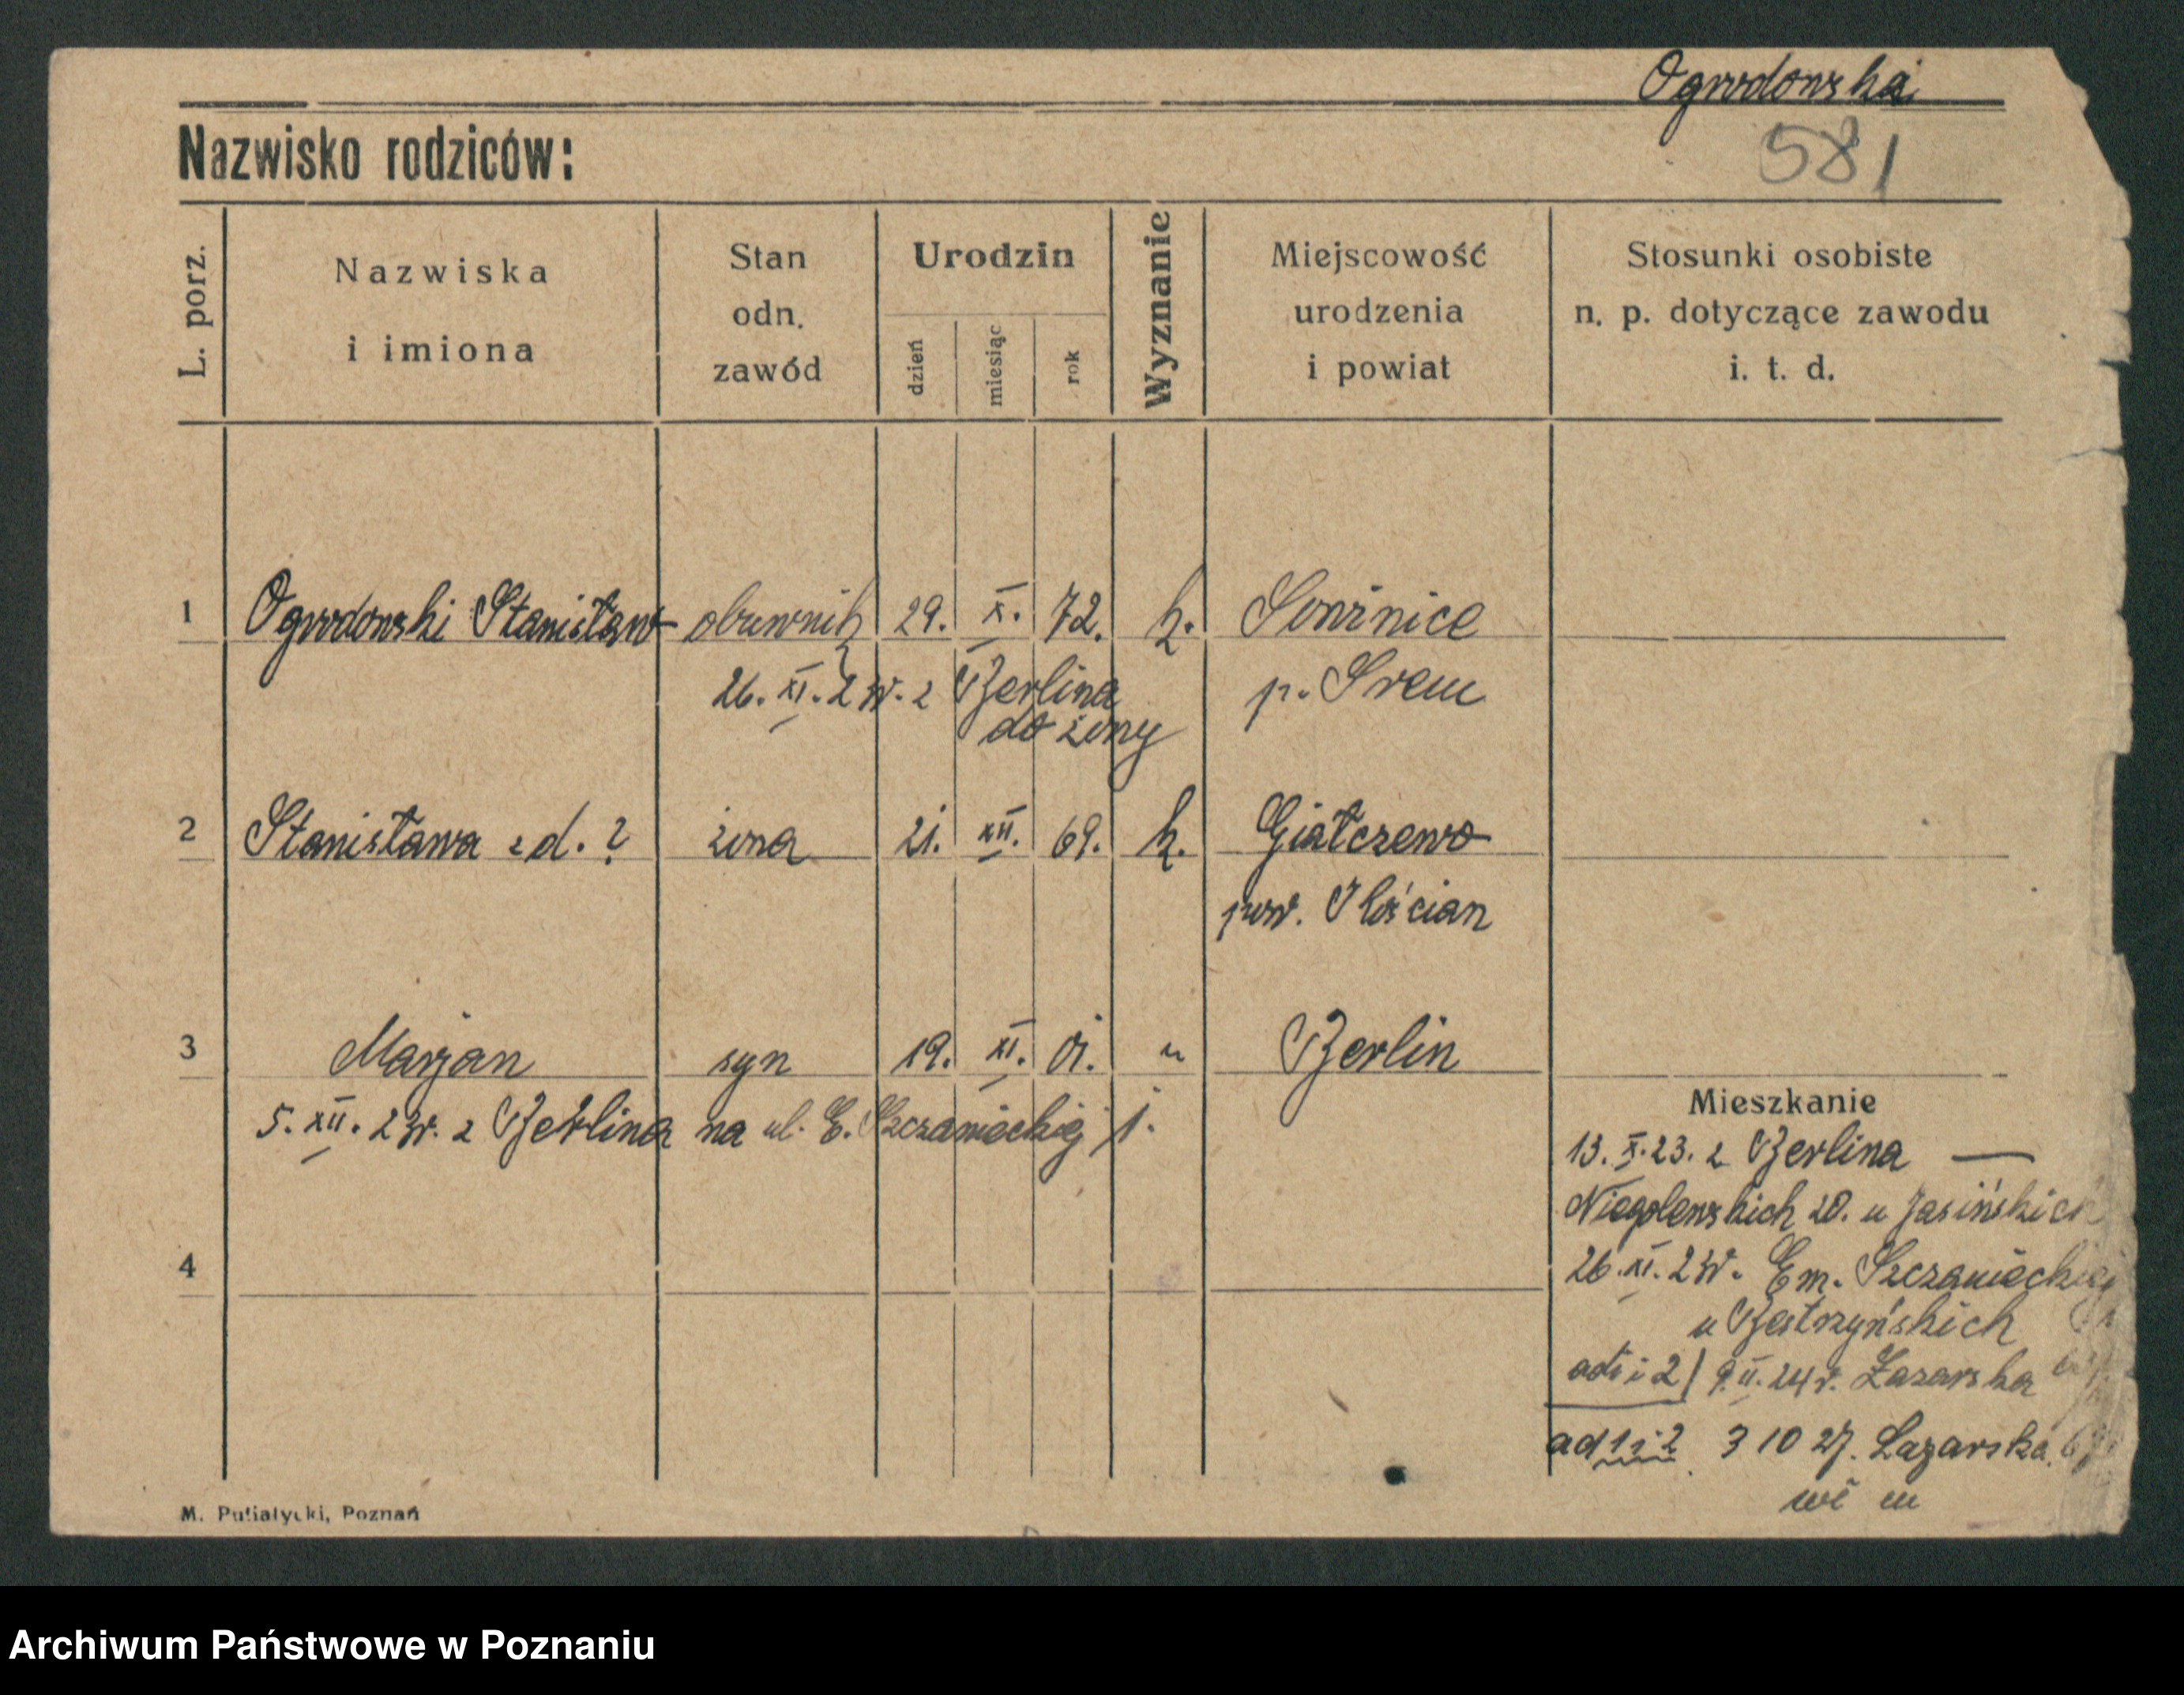 Ogrodowska
581
Nazwisko rodziców:
L. porz.
Nazwiska
i imiona
Stan
odn.
zawód
Urodzin
dzień
miesiąc
rok
Wyznanie
Miejscowość
urodzenia
i powiat
Stosunki osobiste
n. p. dotyczące zawodu
i. t. d.
1 Ogrodowski Stanisław obuwnik 29. X. 72. k. Sowinice
26. XI. 23r. z Berlina p. Śrem
do żony
2 Stanisława z d. ? żona 21. XII. 69. k. Giałczewo
pow. Kościan
3 Marjan syn 19. XI. 01. " Berlin
5. XII. 23r. z Berlina na ul. E. Szczanieckiej j.
Mieszkanie
13. X. 23. z Berlina —
Niegolewskich 20. u Jasińskich
4
26. XI. 23r. Em. Szczanieckiej
u
ad 1 i 2) 9. II. 24r. Łazarska
ad 1 i 2 3 10 27. Łazarska
M. Putiatycki, Poznań
Archiwum Państwowe w Poznaniu